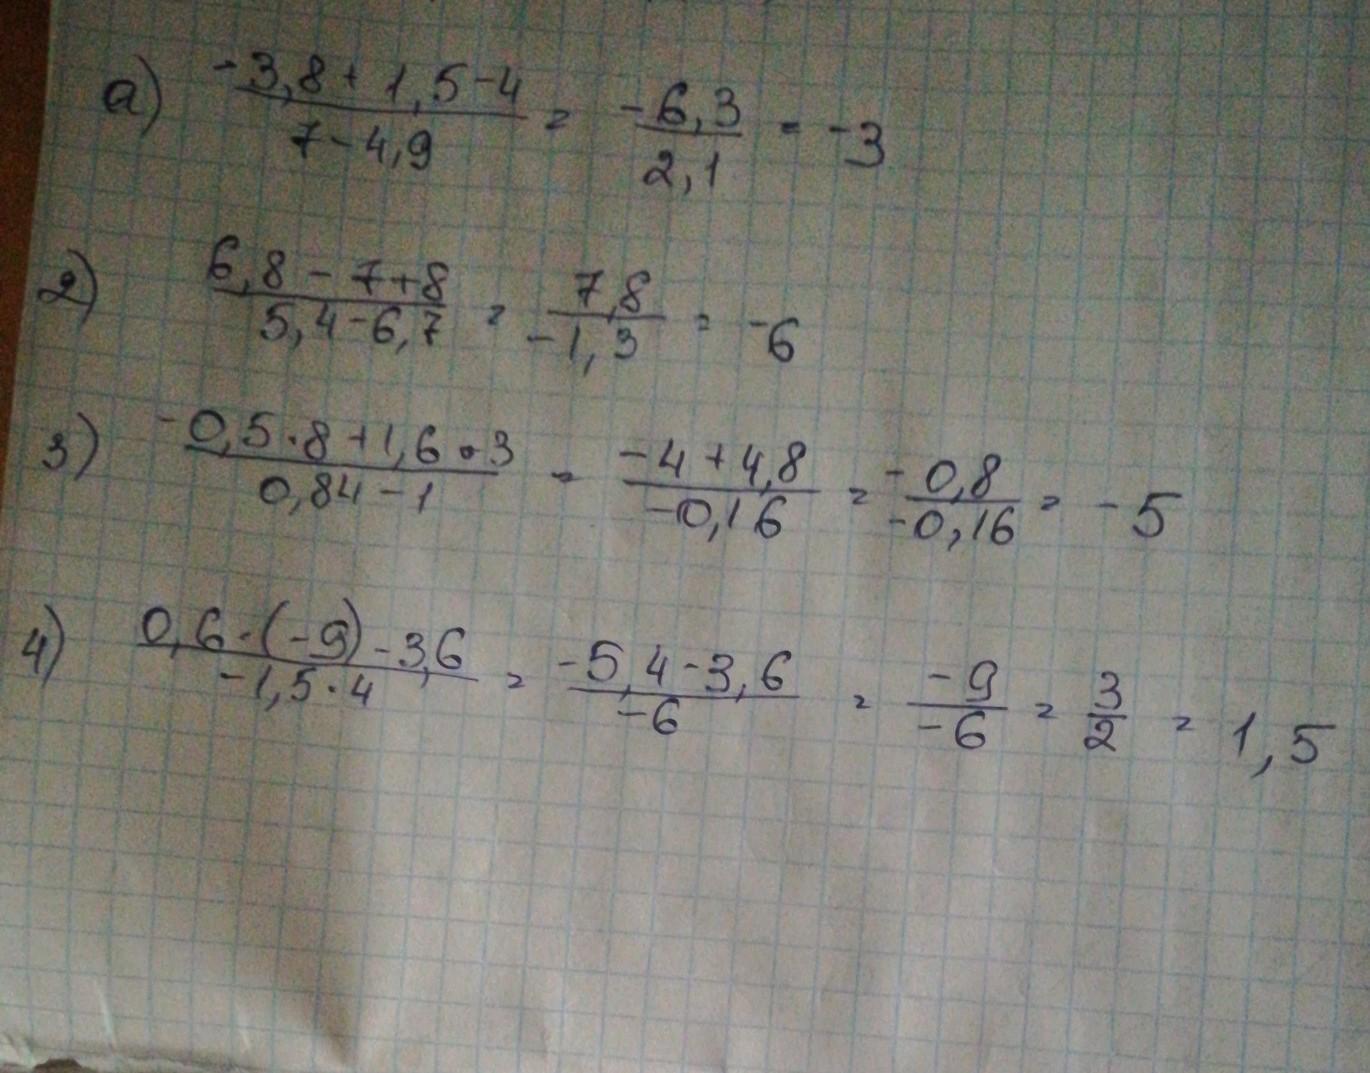 а) (-3,8 + 1,5 - 4)/(7 - 4,9) = (-6,3)/(2,1) = -3
2) (6,8 - 7 + 8)/(5,4 - 6,7) = (7,8)/(-1,3) = -6
3) (-0,5 · 8 + 1,6 · 3)/(0,84 - 1) = (-4 + 4,8)/(-0,16) = (-0,8)/(-0,16) = -5
4) (0,6 · (-9) - 3,6)/(-1,5 · 4) = (-5,4 - 3,6)/(-6) = (-9)/(-6) = 3/2 = 1,5